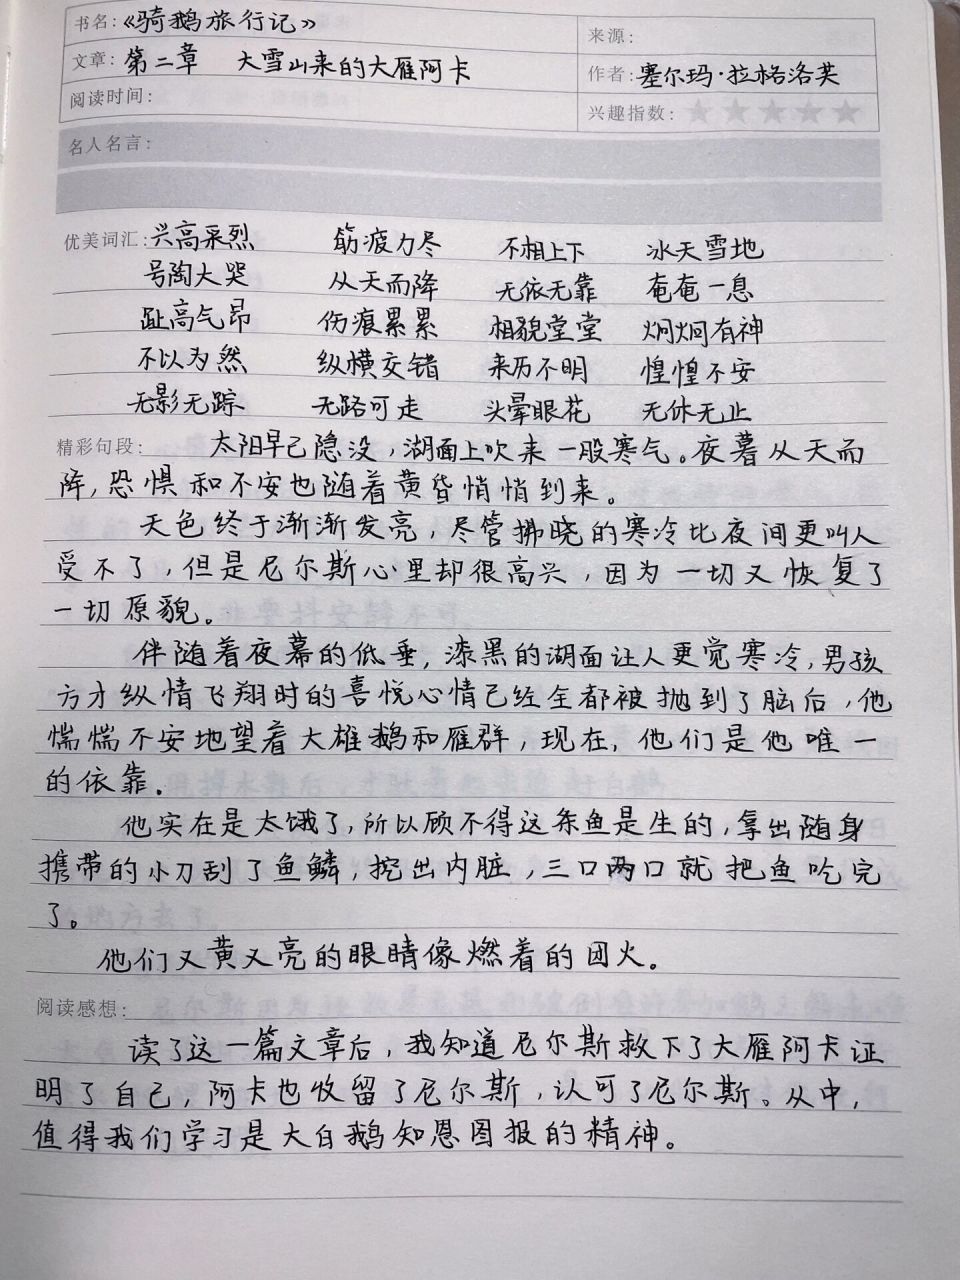 书名：《骑鹅旅行记》
来源：
文章：第二章 大雪山来的大雁阿卡
作者：塞尔玛·拉格洛芙
阅读时间：
兴趣指数：★★★★★
名人名言：
优美词汇：兴高采烈 筋疲力尽 不相上下 冰天雪地
号陶大哭 从天而降 无依无靠 奄奄一息
趾高气昂 伤痕累累 相貌堂堂 炯炯有神
不以为然 纵横交错 来历不明 惶惶不安
无影无踪 无路可走 头晕眼花 无休无止
精彩句段： 太阳早已隐没，湖面上吹来一股寒气。夜暮从天而
降，恐惧和不安也随着黄昏悄悄到来。
天色终于渐渐发亮，尽管拂晓的寒冷比夜间更叫人
受不了，但是尼尔斯心里却很高兴，因为一切又恢复了
一切原貌。
伴随着夜幕的低垂，漆黑的湖面让人更觉寒冷，男孩
方才纵情飞翔时的喜悦心情已经全都被抛到了脑后，他
惴惴不安地望着大雄鹅和雁群，现在，他们是他唯一
的依靠.
他实在是太饿了，所以顾不得这条鱼是生的，拿出随身
携带的小刀刮了鱼鳞，挖出内脏，三口两口就把鱼吃完
了。
他们又黄又亮的眼睛像燃着的团火。
阅读感想：
读了这一篇文章后，我知道尼尔斯救下了大雁阿卡证
明了自己，阿卡也收留了尼尔斯，认可了尼尔斯。从中，
值得我们学习是大白鹅知恩图报的精神。